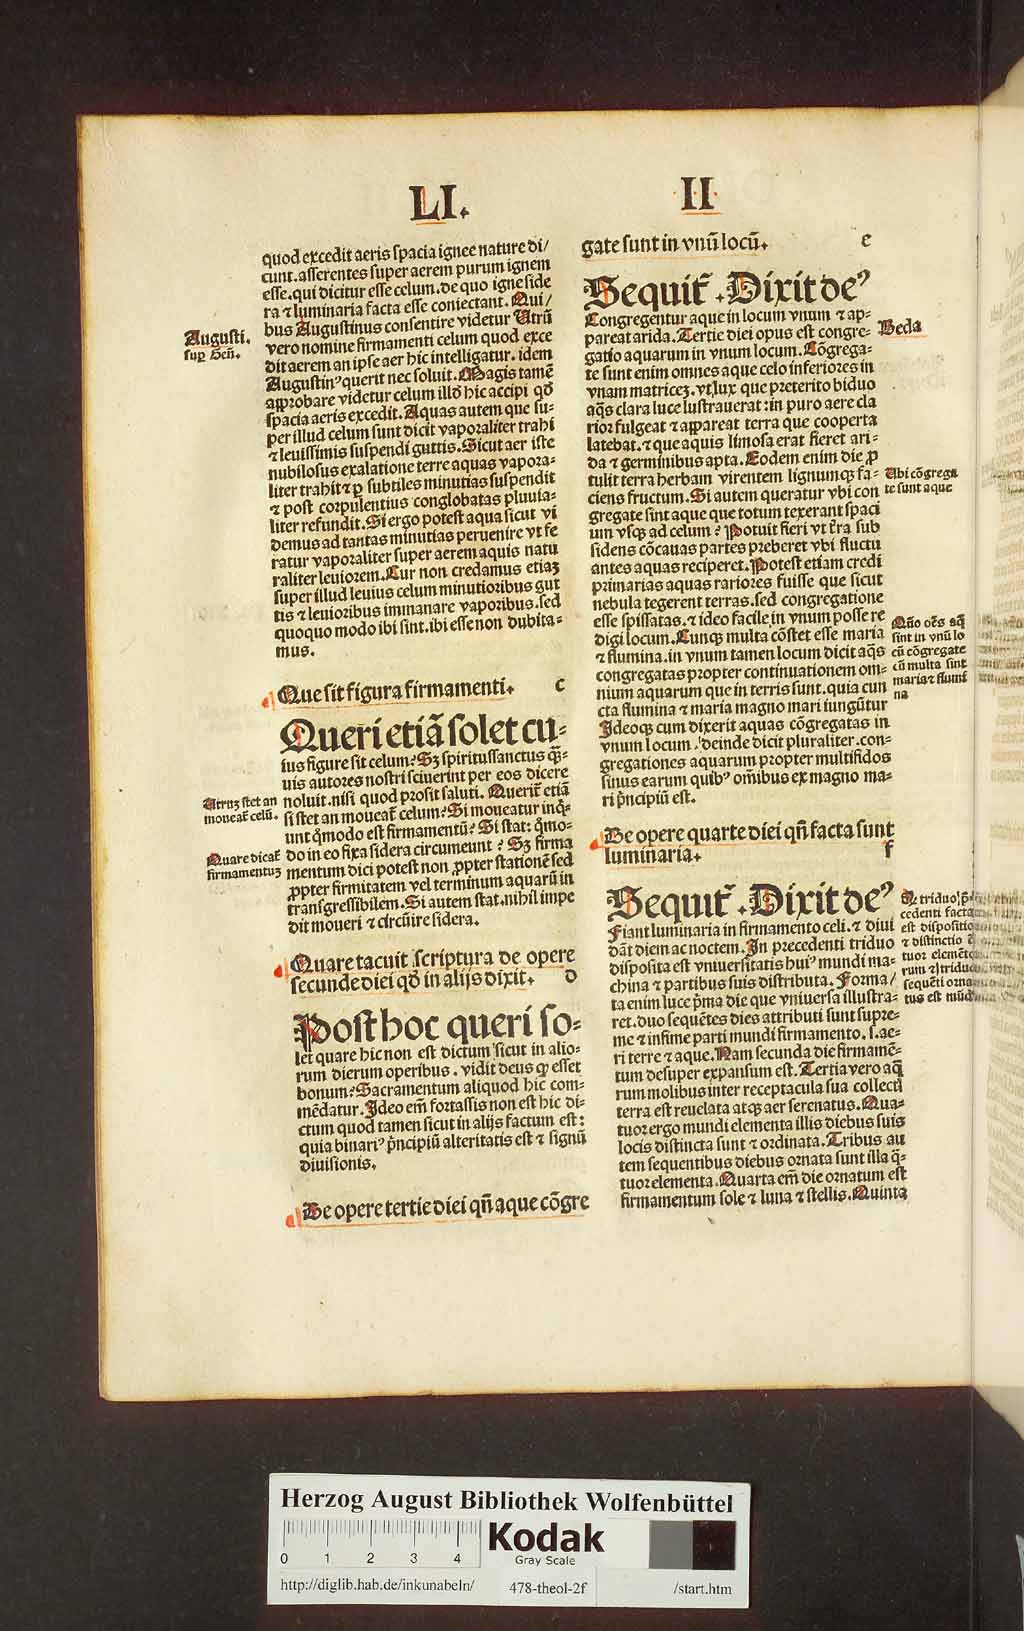 LI.
II
quod excedit aeris spacia ignee nature di/
cunt. asserentes super aerem purum ignem
esse. qui dicitur esse celum. de quo igne side
ra ⁊ luminaria facta esse coniectant. Qui/
bus Augustinus consentire videtur Utrū
vero nomine firmamenti celum quod exce
dit aerem an ipse aer hic intelligatur. idem
Augustinꝰ querit nec soluit. Magis tamē
approbare videtur celum illđ hic accipi qđ
spacia aeris excedit. Aquas autem que su-
per illud celum sunt dicit vaporaliter trahi
⁊ leuissimis suspendi guttis. Sicut aer iste
nubilosus exalatione terre aquas vapora-
liter trahit ⁊ ꝑ subtiles minutias suspendit
⁊ post corpulentius conglobatas pluuia-
liter refundit. Si ergo potest aqua sicut vi
demus ad tantas minutias peruenire vt fe
ratur vaporaliter super aerem aquis natu
raliter leuiorem. Cur non credamus etiaꝫ
super illud leuius celum minutioribus gut
tis ⁊ leuioribus immanare vaporibus. sed
quoquo modo ibi sint. ibi esse non dubita-
mus.
Augusti.
suꝑ Geñ.
Que sit figura firmamenti. c
Queri etiā solet cu-
ius figure sit celum? Sꝫ spiritussanctus q̄-
uis autores nostri sciuerint per eos dicere
noluit. nisi quod prosit saluti. Querit̄ etiā
si stet an moueat̄ celum? Si moueatur inq̄-
unt q̄modo est firmamentū? Si stat: q̄mo-
do in eo fixa sidera circumeunt? Sꝫ firma
mentum dici potest non ꝓpter stationē sed
ꝓpter firmitatem vel terminum aquarū in
transgressibilem. Si autem stat. nihil impe
dit moueri ⁊ circūire sidera.
Utruꝫ stet an
moueat̄ celū.
Quare dicat̄
firmamentuꝫ
Quare tacuit scriptura de opere
secunde diei qđ in alijs dixit. D
Post hoc queri so-
let quare hic non est dictum sicut in alio-
rum dierum operibus. vidit deus ꝙ esset
bonum? Sacramentum aliquod hic com-
mēdatur. Ideo em̄ fortassis non est hic di-
ctum quod tamen sicut in alijs factum est:
quia binariꝰ p̄ncipiū alteritatis est ⁊ signū
diuisionis.
De opere tertie diei qn̄ aque cōgre
gate sunt in vnū locū. e
Sequit̄. Dixit deꝰ
Congregentur aque in locum vnum ⁊ ap-
pareat arida. Tertie diei opus est congre-
gatio aquarum in vnum locum. Cōgrega-
te sunt enim omnes aque celo inferiores in
vnam matriceꝫ. vt lux que preterito biduo
aq̄s clara luce lustrauerat: in puro aere cla
rior fulgeat ⁊ appareat terra que cooperta
latebat. ⁊ que aquis limosa erat fieret ari-
da ⁊ germinibus apta. Eodem enim die ꝓ
tulit terra herbam virentem lignumqꝫ fa-
ciens fructum. Si autem queratur vbi con
gregate sint aque que totum texerant spaci
um vsqꝫ ad celum? Potuit fieri vt t̄ra sub
sidens cōcauas partes preberet vbi fluctu
antes aquas reciperet. Potest etiam credi
primarias aquas rariores fuisse que sicut
nebula tegerent terras. sed congregatione
esse spissatas. ⁊ ideo facile in vnum posse re
digi locum. Cunqꝫ multa cōstet esse maria
⁊ flumina. in vnum tamen locum dicit aq̄s
congregatas propter continuationem om-
nium aquarum que in terris sunt. quia cun
cta flumina ⁊ maria magno mari iungūtur
Ideoqꝫ cum dixerit aquas cōgregatas in
vnum locum. deinde dicit pluraliter. con-
gregationes aquarum propter multifidos
sinus earum quibꝰ om̄ibus ex magno ma-
ri p̄ncipiū est.
Beda
Ubi cōgrega
te sunt aque
Quō oēs aq̄
sint in vnū lo
cū cōgregate
cū multa sint
maria ⁊ flumi
na
De opere quarte diei qn̄ facta sunt
luminaria. f
Sequit̄. Dixit deꝰ
Fiant luminaria in firmamento celi. ⁊ diui
dāt diem ac noctem. In precedenti triduo
disposita est vniuersitatis huiꝰ mundi ma-
china ⁊ partibus suis distributa. Forma/
ta enim luce p̄ma die que vniuersa illustra-
ret. duo sequētes dies attributi sunt supre-
me ⁊ infime parti mundi firmamento. s. ae-
ri terre ⁊ aque. Nam secunda die firmamē-
tum desuper expansum est. Tertia vero aq̄
rum molibus inter receptacula sua collecti
terra est reuelata atqꝫ aer serenatus. Qua-
tuor ergo mundi elementa illis diebus suis
locis distincta sunt ⁊ ordinata. Tribus au
tem sequentibus diebus ornata sunt illa q̄-
tuor elementa. Quarta em̄ die ornatum est
firmamentum sole ⁊ luna ⁊ stellis. Quinta
triduo p̄
cedenti facta
est dispositio
⁊ distinctio
tuor elemēto
rum ⁊ triduo
sequēti orna
tus est mūdꝰ
Herzog August Bibliothek Wolfenbüttel
0 1 2 3 4
Kodak
Gray Scale
http://diglib.hab.de/inkunabeln/ 478-theol-2f /start.htm